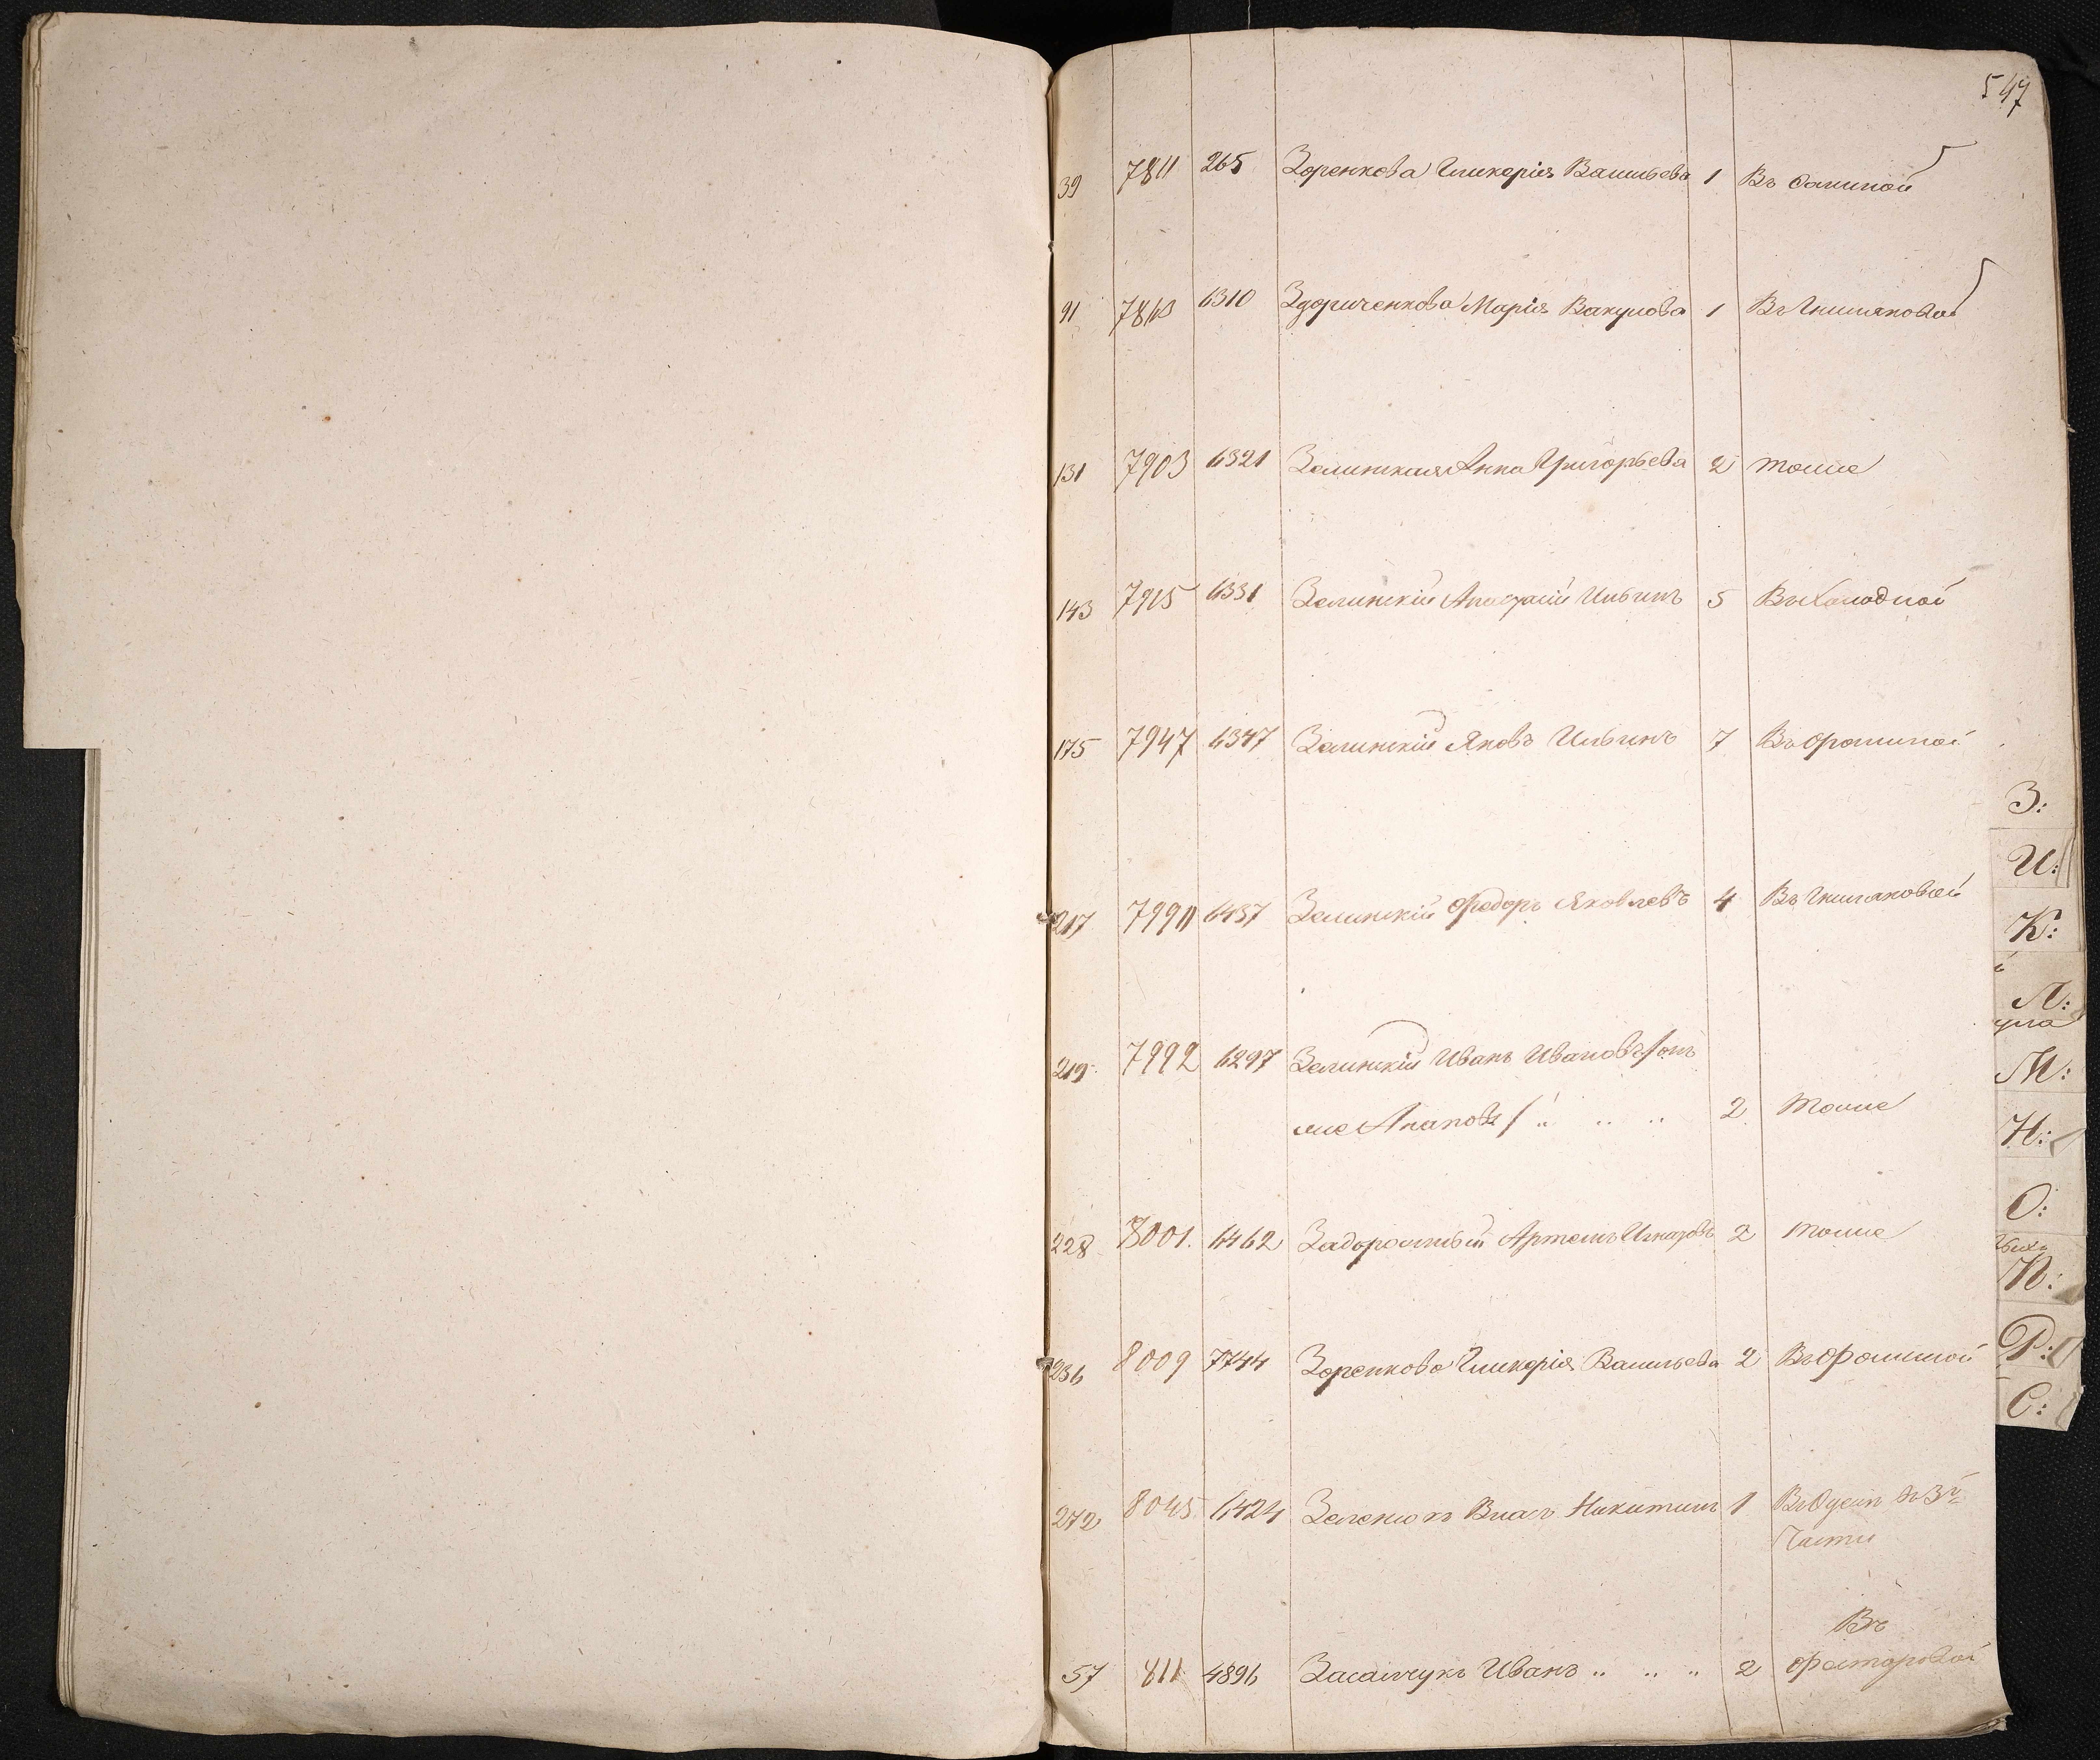 547
39 7811 265 Зоренкова Гликерія Васильева 1 Въ
91 7863 6310 Здориченкова Марія Вакулова 1 Въ
131 7903 6321 Зелинская Анна Григорьева 2 тоже
143 7915 6331 Зелинскій Ильинъ 5 Въ Холодной
175 7947 6347 Зелинскій Яковъ Ильинъ 7 Въ
217 7990 6437 Зелинскій Федоръ Яковлевъ 4 Въ
219 7992 6297 Зелинскій Иванъ Ивановъ /онъ
же Агаповъ/ " .. .. 2 Тоже
228 8001. 6462 Задорожный Артемъ 2 тоже
236 8009 7744 Зоренкова Гликерія Васильева 2 Въ
272 8045 6424 Зеленюкъ Власъ Никитинъ 1 въ 3й
Части
Въ
57 811 4896 Засанчукъ Иванъ .. .. .. 2
З:
И:
К:
Л:
М:
Н:
О:
П:
Р:
С: